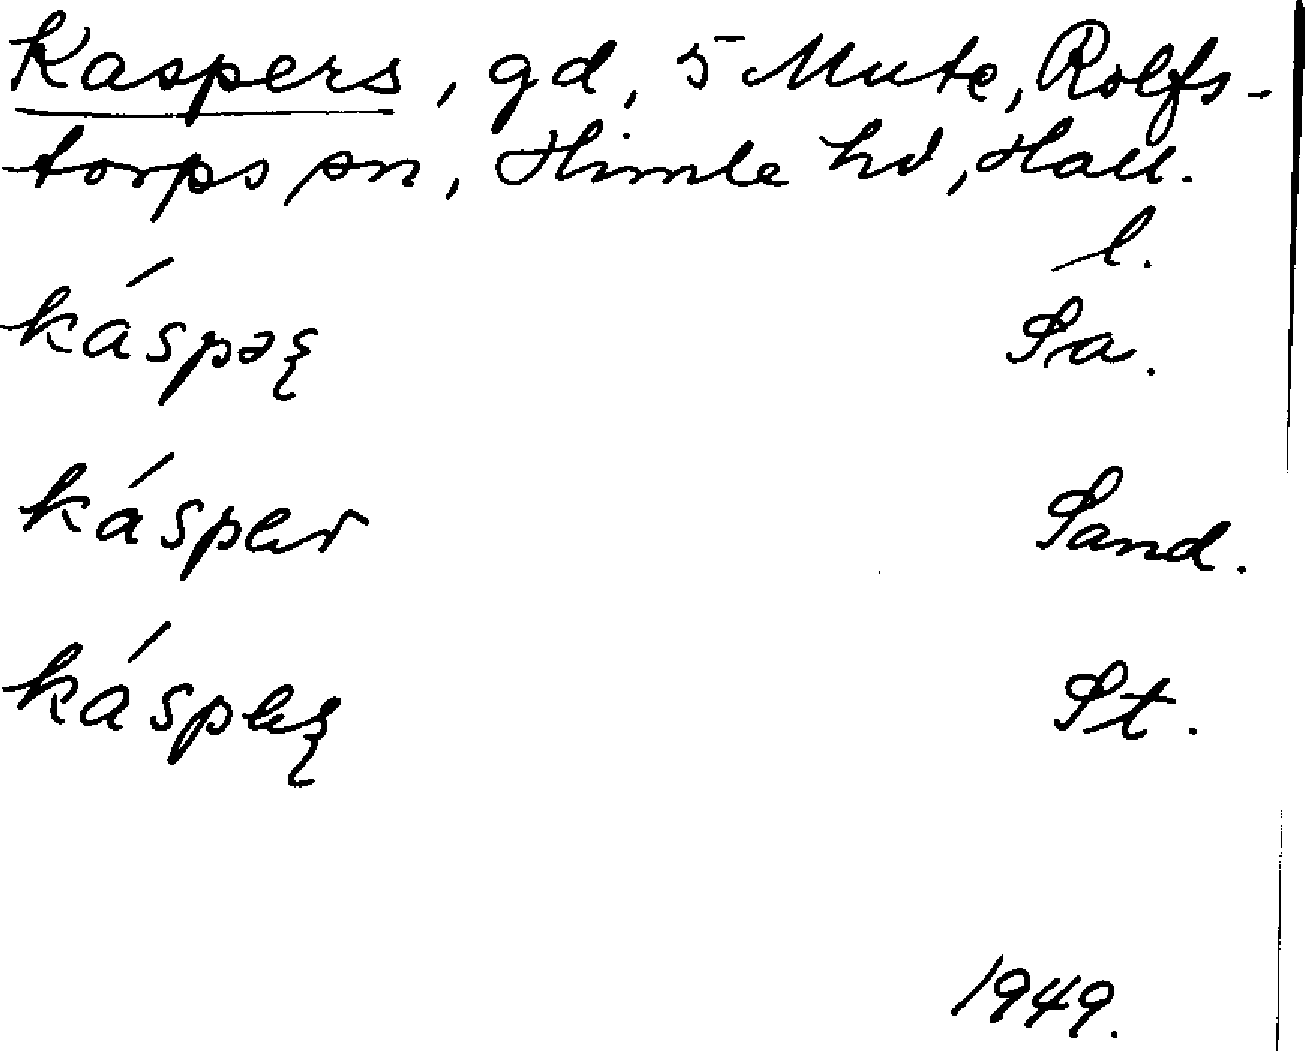 Kaspers, gd, 5 Mute, Rolfs-
torps sn, Himle hd, Hall.
l.
káspəʂ Sa.
káspɐr Sand.
káspɐʂ St.
1949.